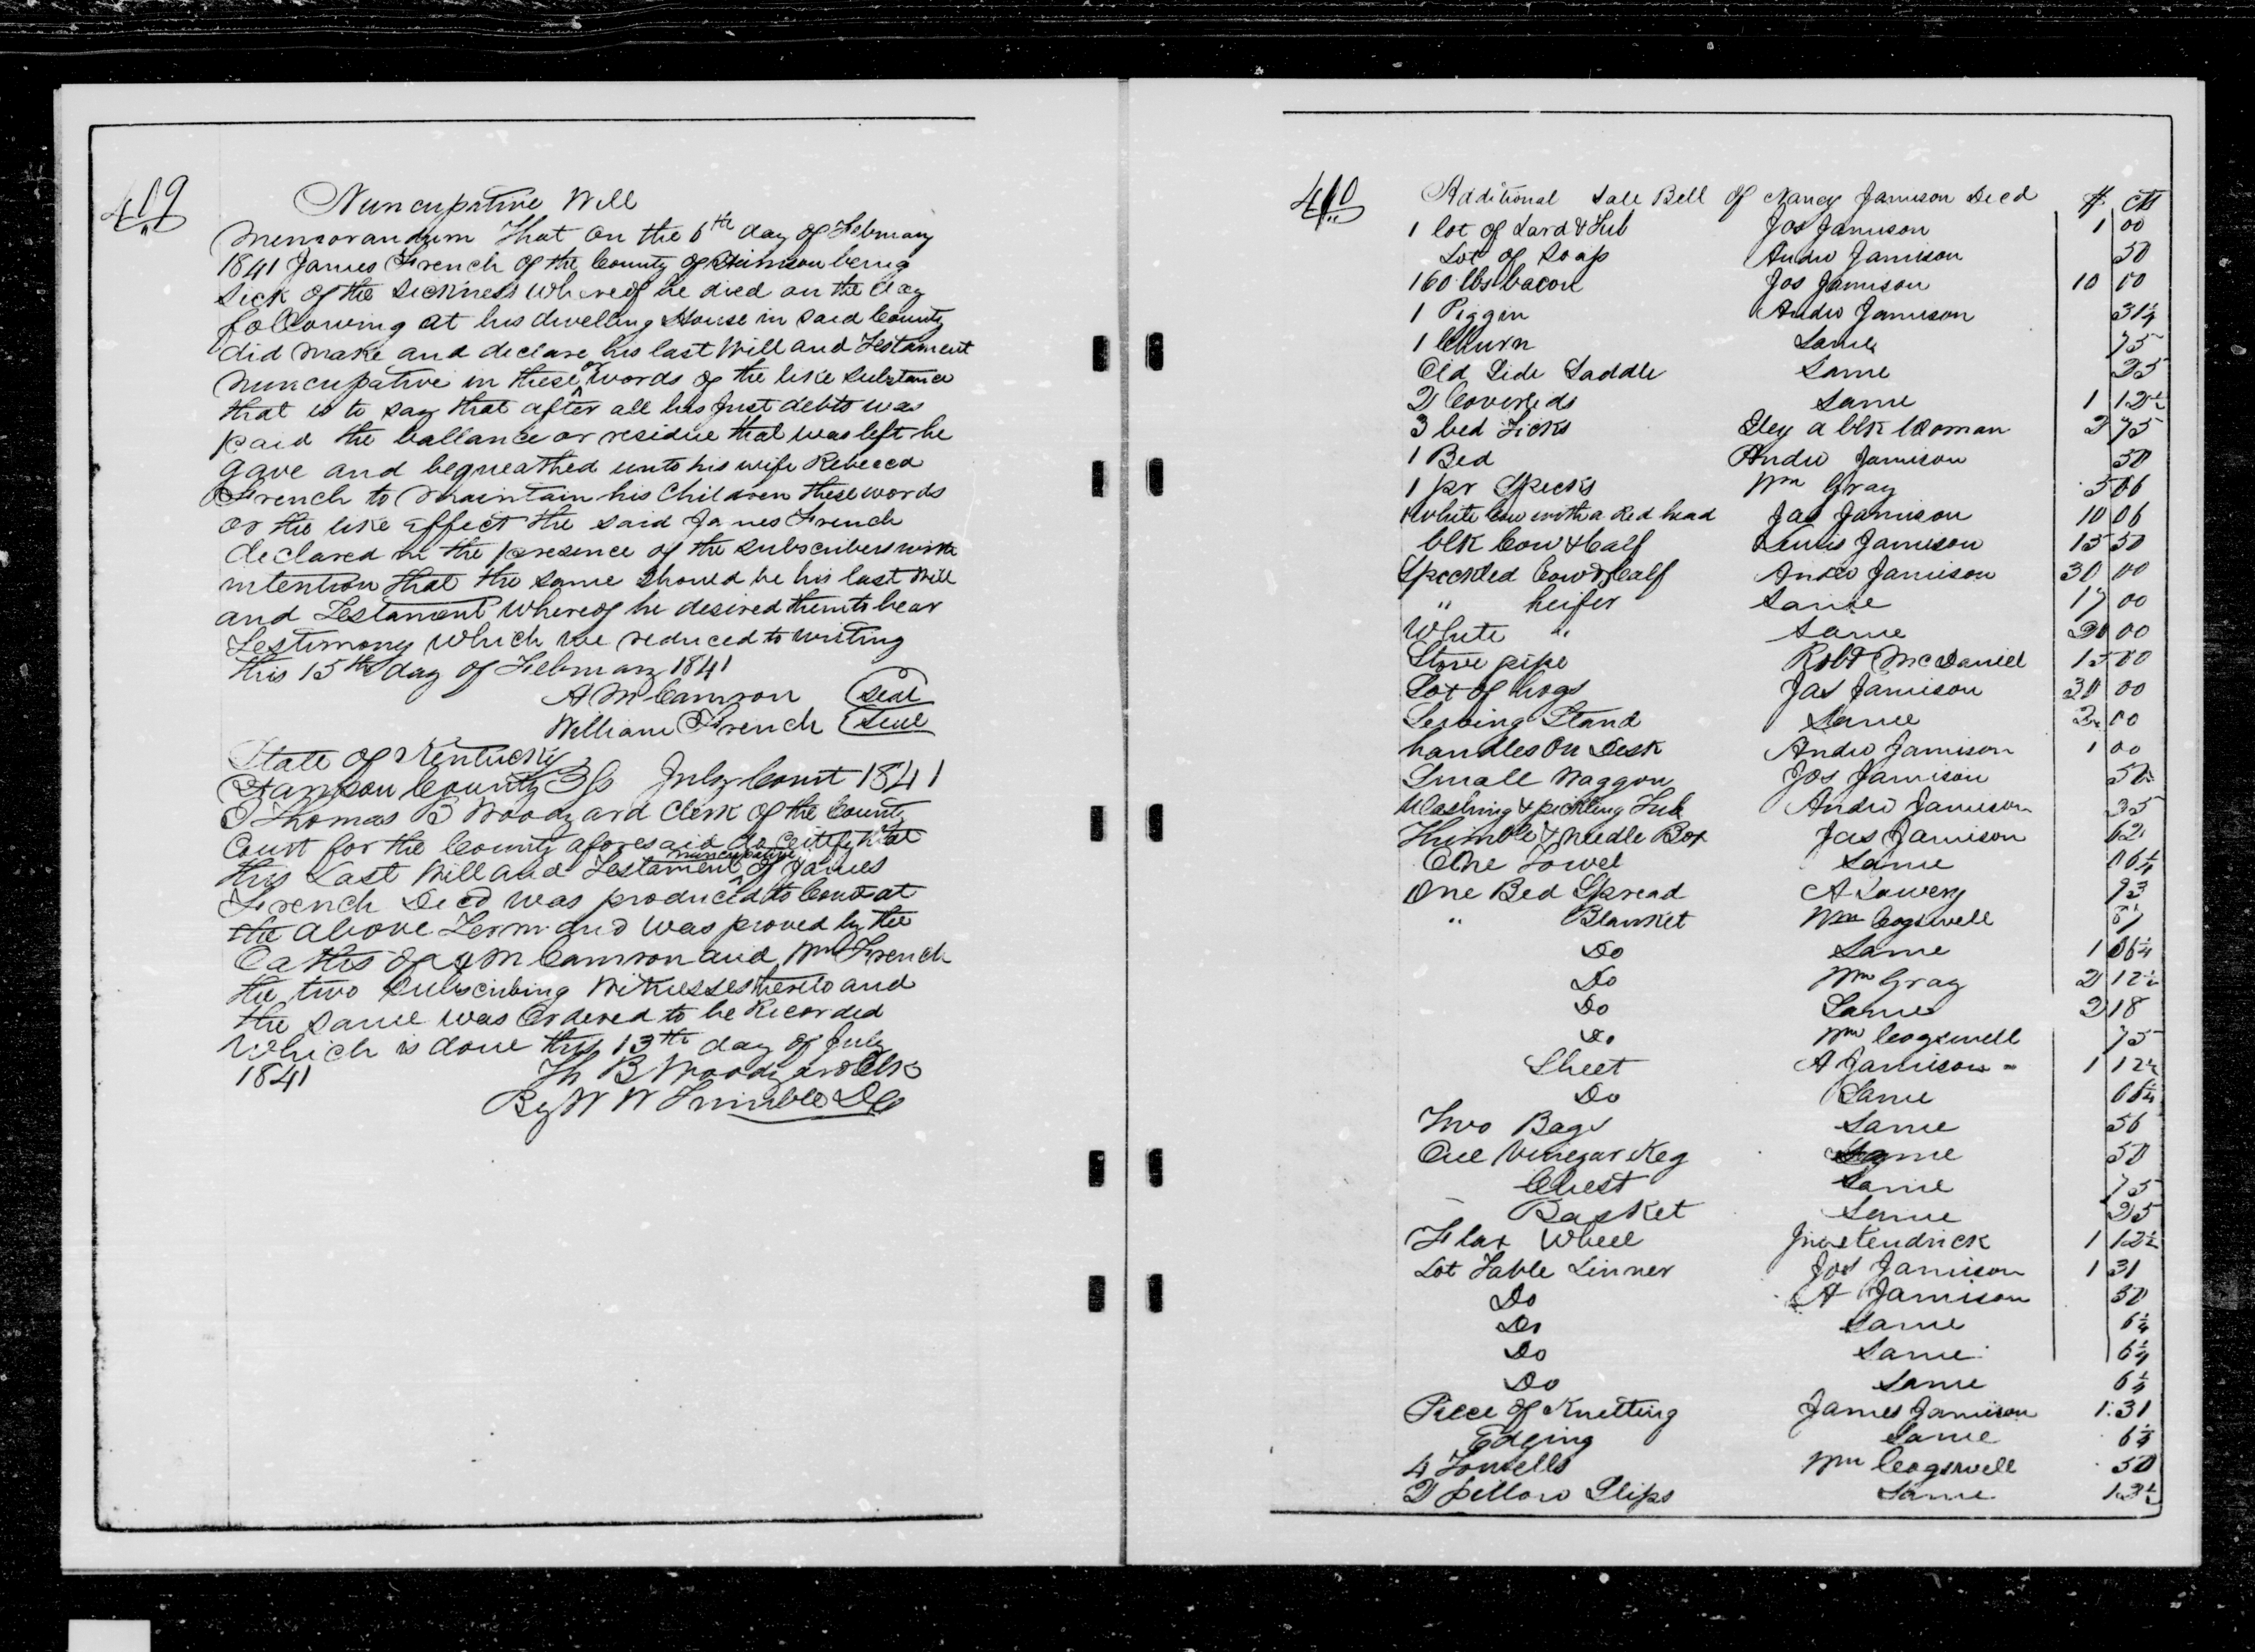 409
Nuncupative Will
Memorandum That on the 6th day of February
1841 James French of the County of Harrison being
sick of the sickness whereof he died on the day
following at his dwelling House in said County
did make and declare his last Will and Testament
nuncupative in these or words of the like substance
that is to say that after all his just debts was
paid the ballance or residue that was left he
gave and bequeathed unto his wife Rebecca
French to maintain his Children these words
or the like effect the said James French
declared in the presence of the subscribers with
intention that the same should be his last Will
and Testament whereof he desired them to bear
Testimony which we reduced to writing
this 15th day of February 1841
A McCamron Seal
William French Seal
State of Kentucky
Harrison County July Court 1841
I Thomas B Woodyard Clerk of the County
Court for the County aforesaid do certify that
this Last Will and Testament nuncupative of James
French Decd was produced to Court at
the above Term and was proved by the
Oaths of A McCamron and Wm French
the two subscribing Witnesses hereto and
the same was Ordered to be Recorded
Which is done this 13th day of July
1841 Th B Woodyard Clk
By W W Trimble DC
410
Additional Sale Bill of Nancy Jamison Decd $ cts
1 lot of Lard & Tub Jos Jamison 1 00
Lot of Soap Andw Jamison 50
160 lbs bacon Jos Jamison 10 00
1 Piggin Andw Jamison 31¼
1 Churn Same 75
Old Side Saddle Same 25
2 Coverleds Same 1 12½
3 bed Ticks a blk Woman 2 75
1 Bed Andw Jamison 50
1 pr Specks Wm Gray
1 White Cow with a Red head Jas Jamison 10 06
blk Cow & Calf Lewis Jamison 15 50
Speckled Cow & Calf Andw Jamison 30 00
" heifer Same 17 00
White " Same 20 00
Stove pipe Robt McDaniel 15 00
Lot of hogs Jas Jamison 30 00
Serving Stand Same 2 00
handles on Desk Andw Jamison 1 00
Small Waggon Jos Jamison 50
Washing & pickling Tub Andw Jamison 35
Thimble & needle Box Jas Jamison 62
One Towel Same 06¼
One Bed Spread A Lowery 93
" Blanket Wm Cogswell
Do Same 1 06¼
Do Wm Gray 2 12½
Do Same 2 18
Do Wm Cogswell 75
Sheet A Jamison 1 12½
Do Same 06¼
Two Bags Same 56
One Vinegar Keg Same 50
Chest Same 75
Basket Same 25
Flax Wheel Jno Kendrick 1 12½
Lot Table Linner Jos Jamison 1 31
Do A Jamison 50
Do Same 6¼
Do Same 6¼
Do Same 6¼
Piece of Knitting James Jamison 1.31
Edging Same 6¼
4 Towells Wm Cogswell 50
2 pillow Slips Same 12½